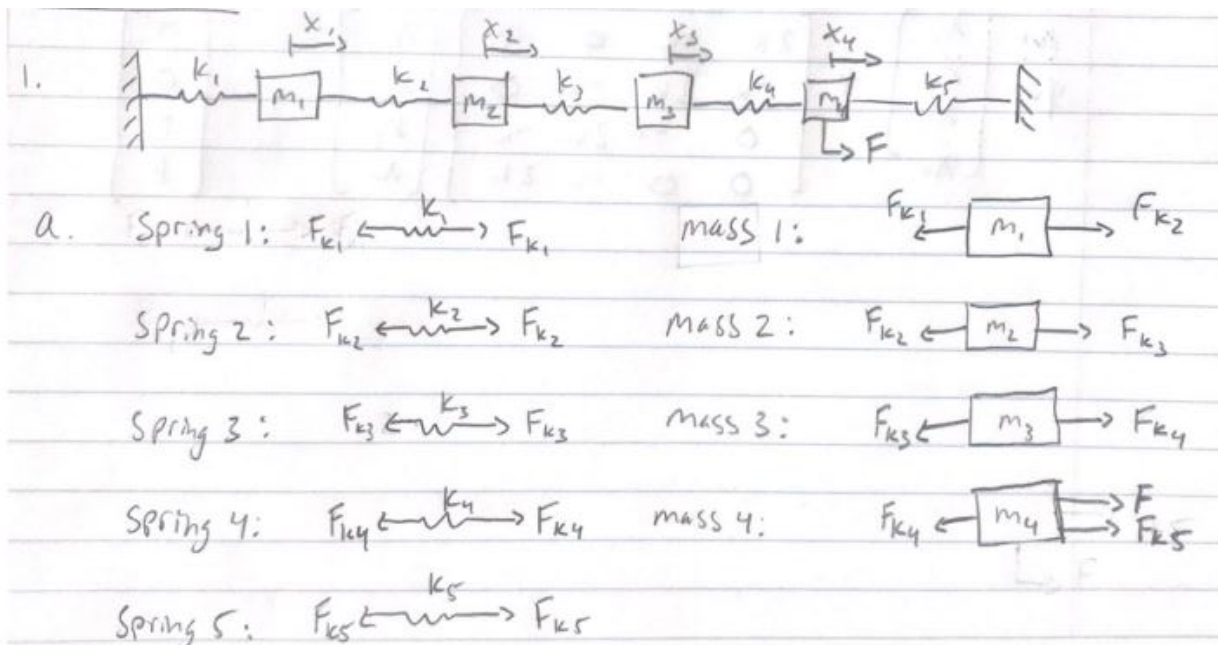 x₁ x₂ x₃ x₄
1. k₁ m₁ k₂ m₂ k₃ m₃ k₄ m₄ k₅
F
a. Spring 1: F_k₁ k₁ F_k₁ mass 1: F_k₁ m₁ F_k₂
Spring 2: F_k₂ k₂ F_k₂ mass 2: F_k₂ m₂ F_k₃
Spring 3: F_k₃ k₃ F_k₃ mass 3: F_k₃ m₃ F_k₄
Spring 4: F_k₄ k₄ F_k₄ mass 4: F_k₄ m₄ F F_k₅
Spring 5: F_k₅ k₅ F_k₅